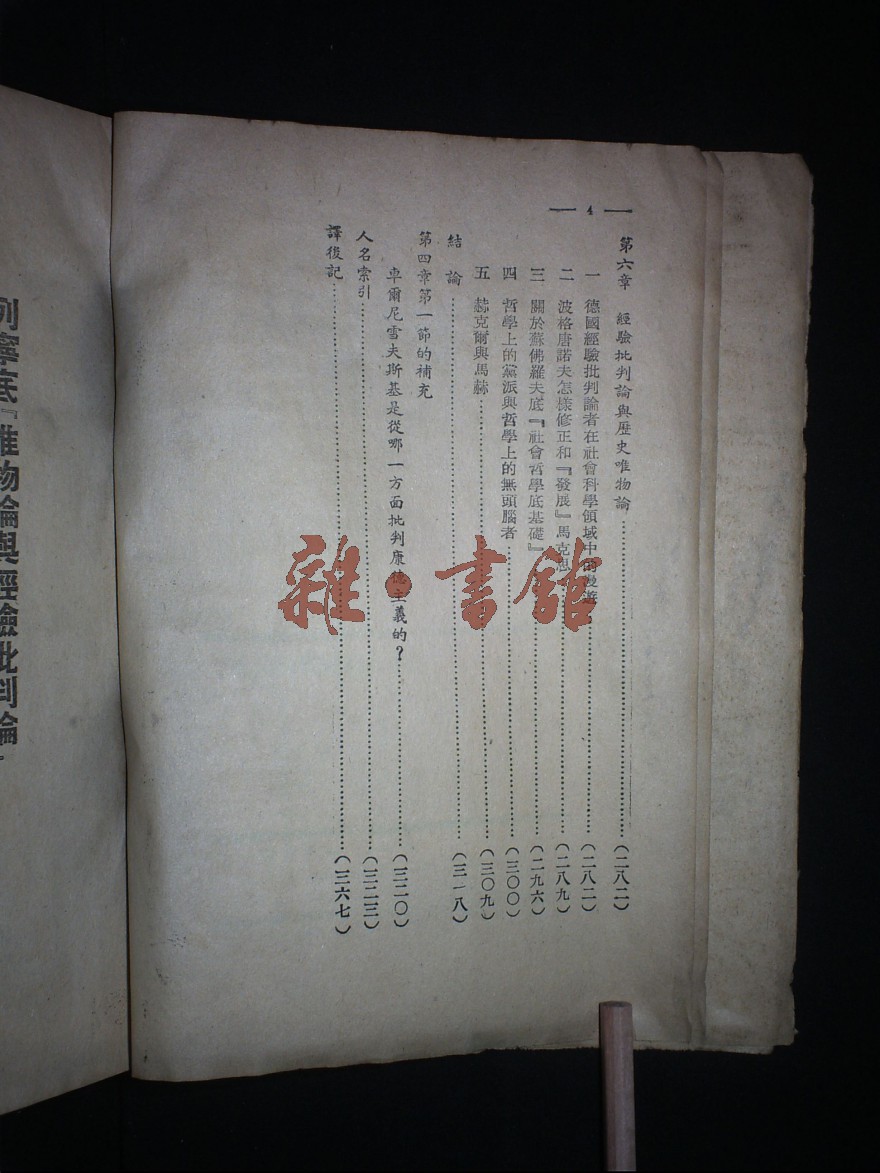 4
第六章 經驗批判論與歷史唯物論(二八二)
一 德國經驗批判論者在社會科學領域中的(二八二)
二 波格唐諾夫怎樣修正和『發展』馬克思(二八九)
三 關於蘇佛羅夫底『社會哲學底基礎』(二九六)
四 哲學上的黨派與哲學上的無頭腦者(三〇〇)
五 赫克爾與馬赫(三〇九)
結論(三一八)
第四章第一節的補充
車爾尼雪夫斯基是從哪一方面批判康德主義的?(三二〇)
人名索引(三二三)
譯後記(三六七)
列寧底『唯物論與經驗批判論』
雜·書館